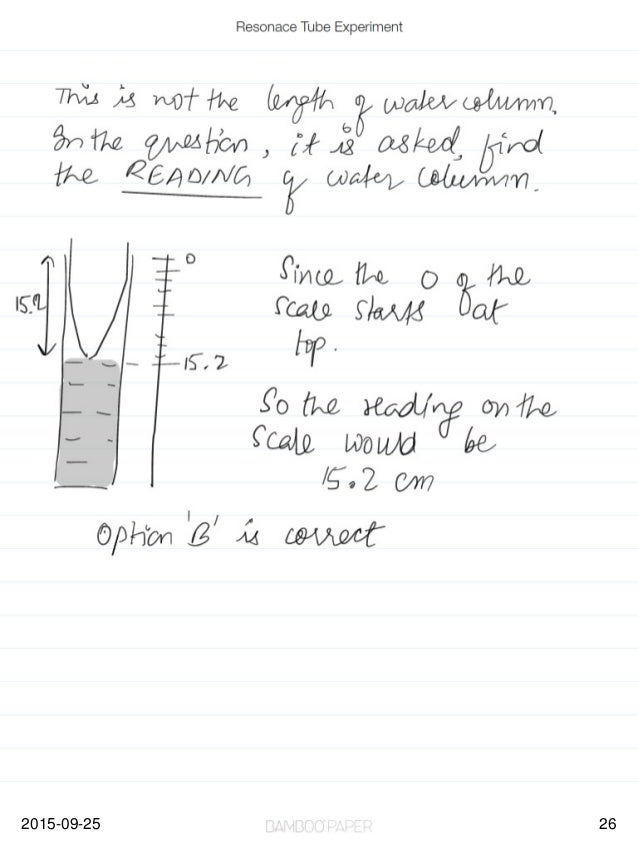 Resonace Tube Experiment
This is not the length of water column.
In the question, it is asked, find
to
the READING of water column.
0
15.2
15.2
Since the 0 of the
scale starts at
top.
So the reading on the
scale would be
15.2 cm
Option 'B' is correct
2015-09-25
BAMBOO PAPER
26